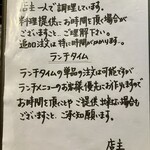 店主一人で調理しています。
料理提供にお時間を頂く場合が
ございますこと、ご理解下さい。
追加注文は特に時間がかかります。
ランチタイム
ランチタイムの単品の注文は可能ですが
ランチメニューのお客様優先にお作りしますので
お時間を頂くことやご提供出来ない場合も
ございますこと、ご承知願います。
店主